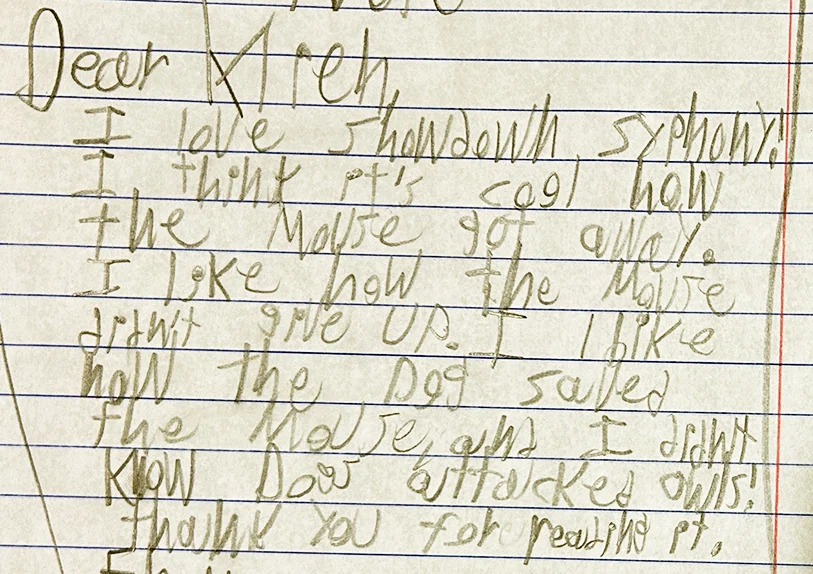 Dear Kireh,
I love showdown syphony!
I think it's cool how
the Mouse got away.
I like how the Mouse
didn't give UP. I like
how the Dog saved
the Mouse, and I didn't
Know Dogs attacked owls!
thank you for reading it.